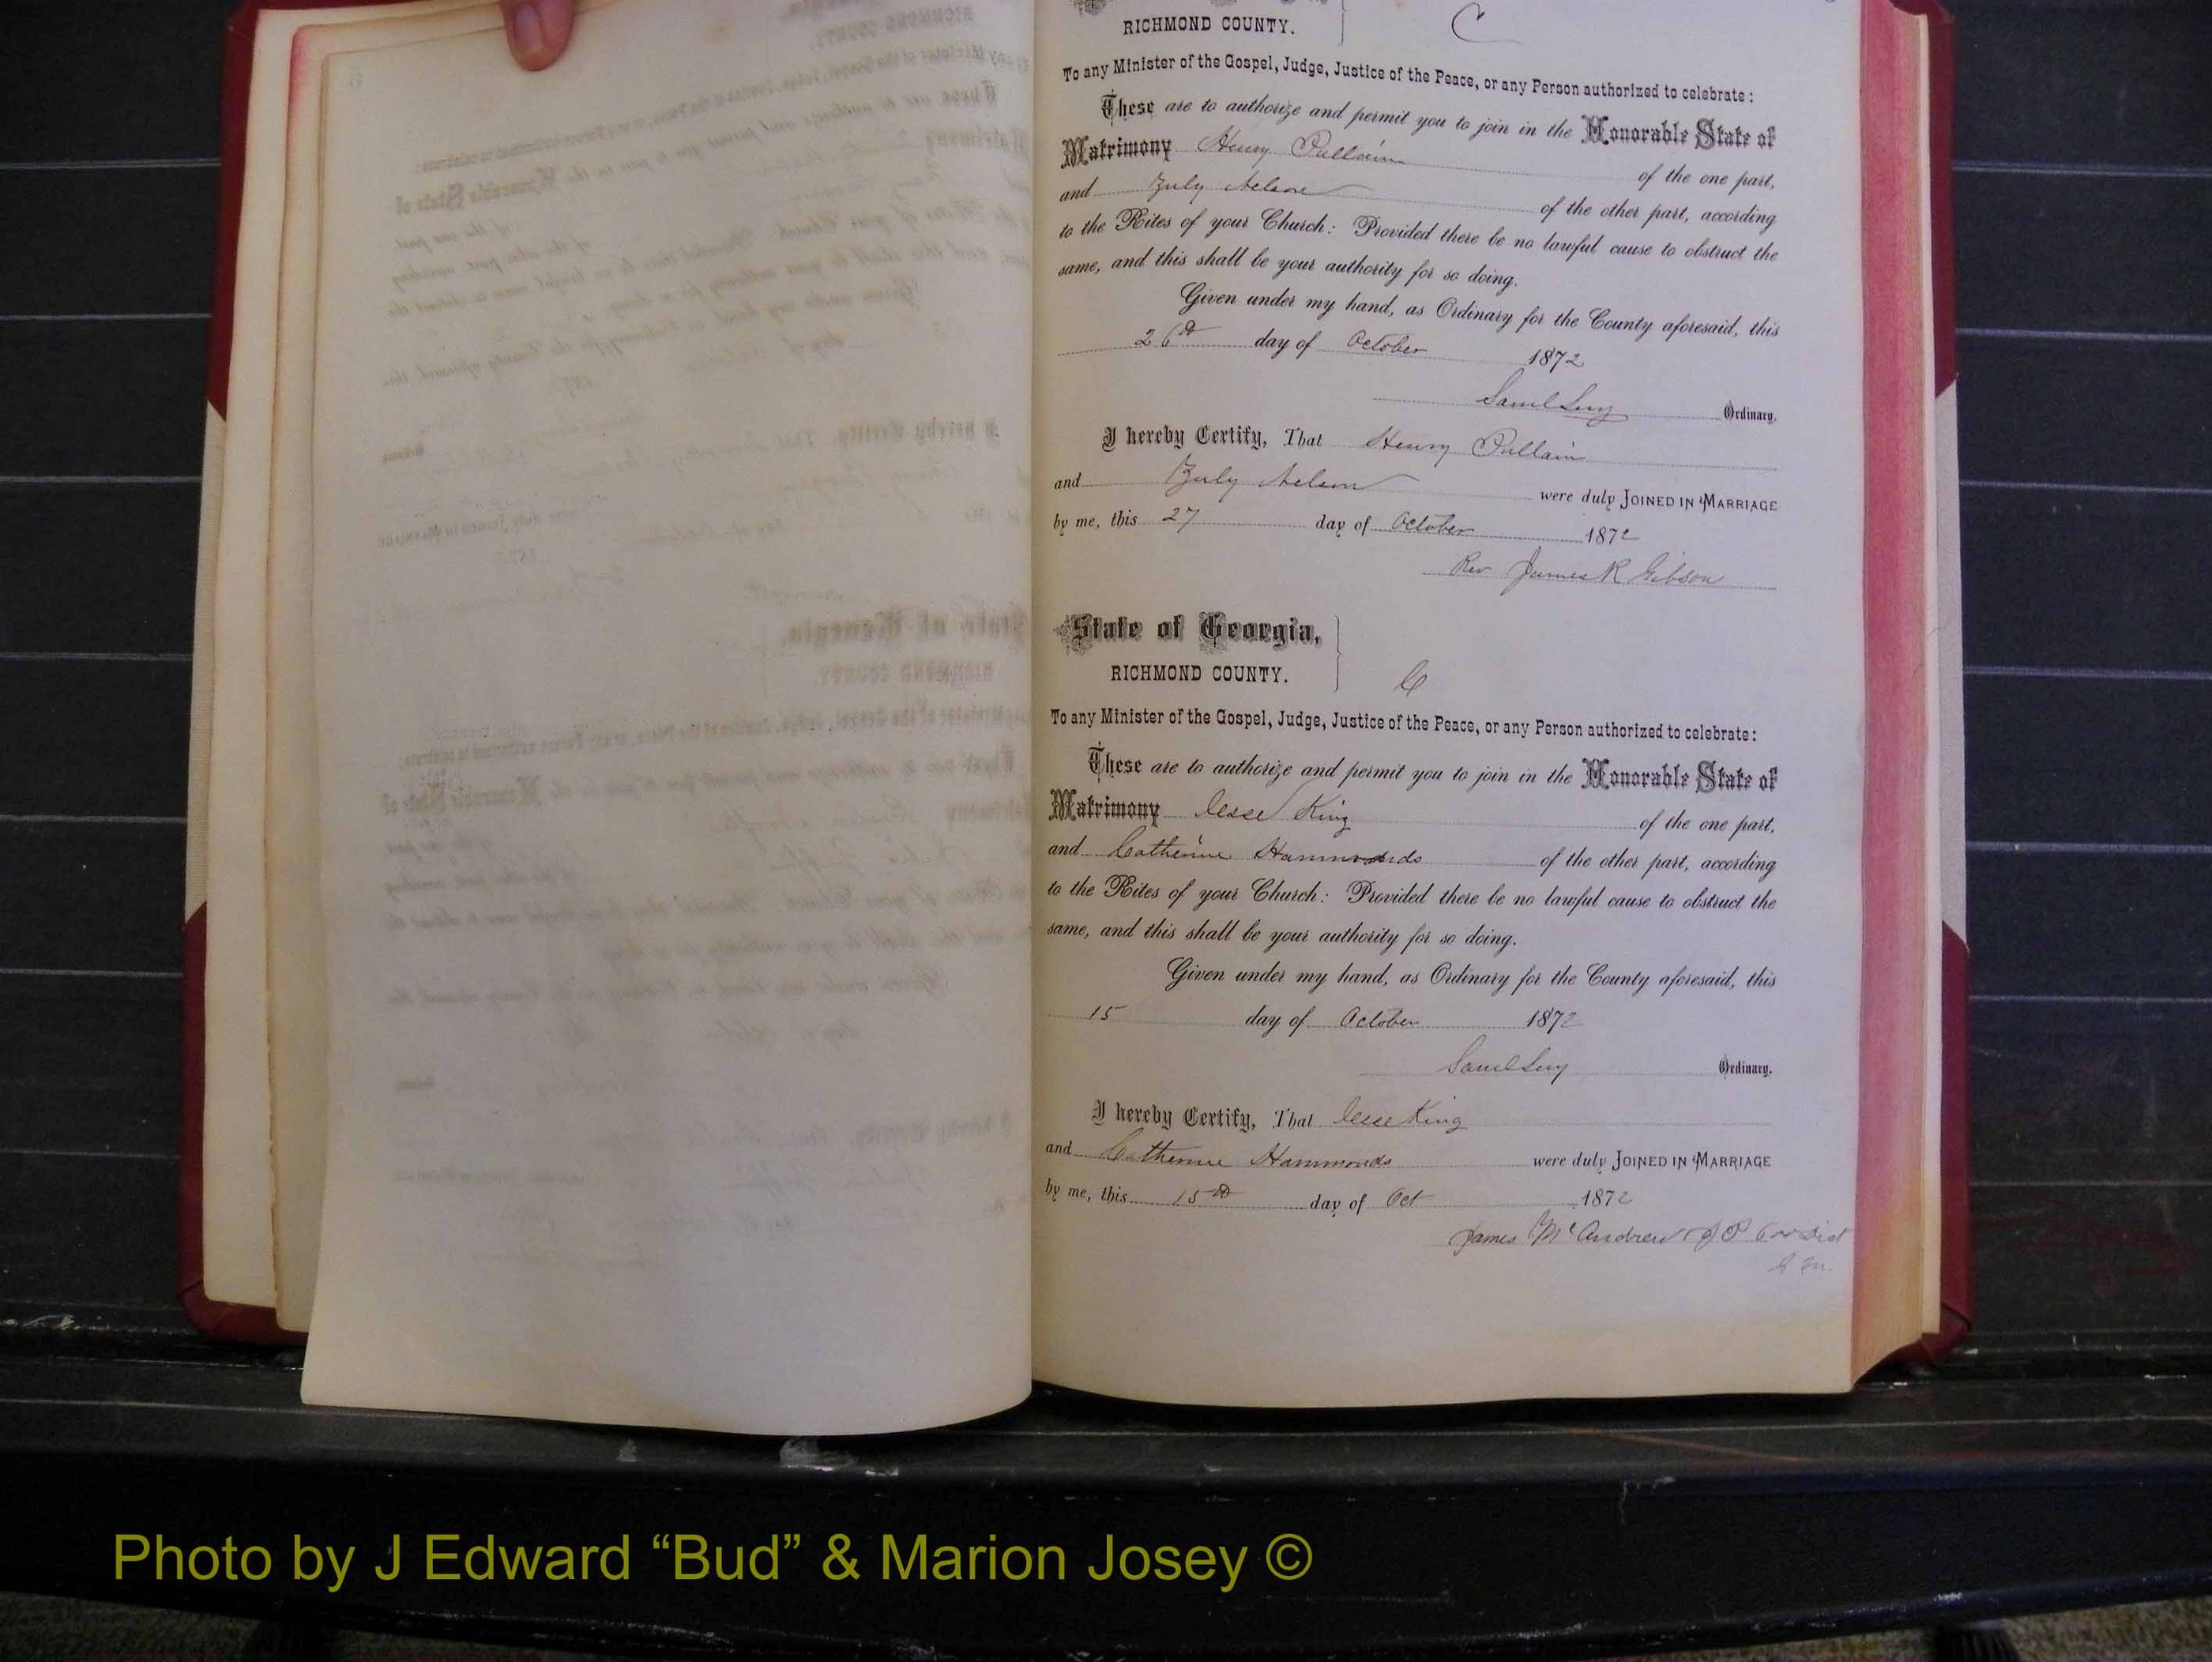 RICHMOND COUNTY. C
To any Minister of the Gospel, Judge, Justice of the Peace, or any Person authorized to celebrate:
These are to authorize and permit you to join in the Honorable State of
Matrimony Henry Pullain of the one part,
and July Nelson of the other part, according
to the Rites of your Church: Provided there be no lawful cause to obstruct the
same, and this shall be your authority for so doing.
Given under my hand, as Ordinary for the County aforesaid, this
26th day of October 1872
Saml Levy Ordinary.
I hereby Certify, That Henry Pullain
and July Nelson were duly JOINED IN MARRIAGE
by me, this 27 day of October 1872
Rev James R Gibson
State of Georgia,
RICHMOND COUNTY. C
To any Minister of the Gospel, Judge, Justice of the Peace, or any Person authorized to celebrate:
These are to authorize and permit you to join in the Honorable State of
Matrimony Jesse King of the one part,
and Catherine Hammonds of the other part, according
to the Rites of your Church: Provided there be no lawful cause to obstruct the
same, and this shall be your authority for so doing.
Given under my hand, as Ordinary for the County aforesaid, this
15 day of October 1872
Saml Levy Ordinary.
I hereby Certify, That Jesse King
and Catherine Hammonds were duly JOINED IN MARRIAGE
by me, this 15th day of Oct 1872
James McAndrew JP Dist
G M.
Photo by J Edward “Bud” & Marion Josey ©